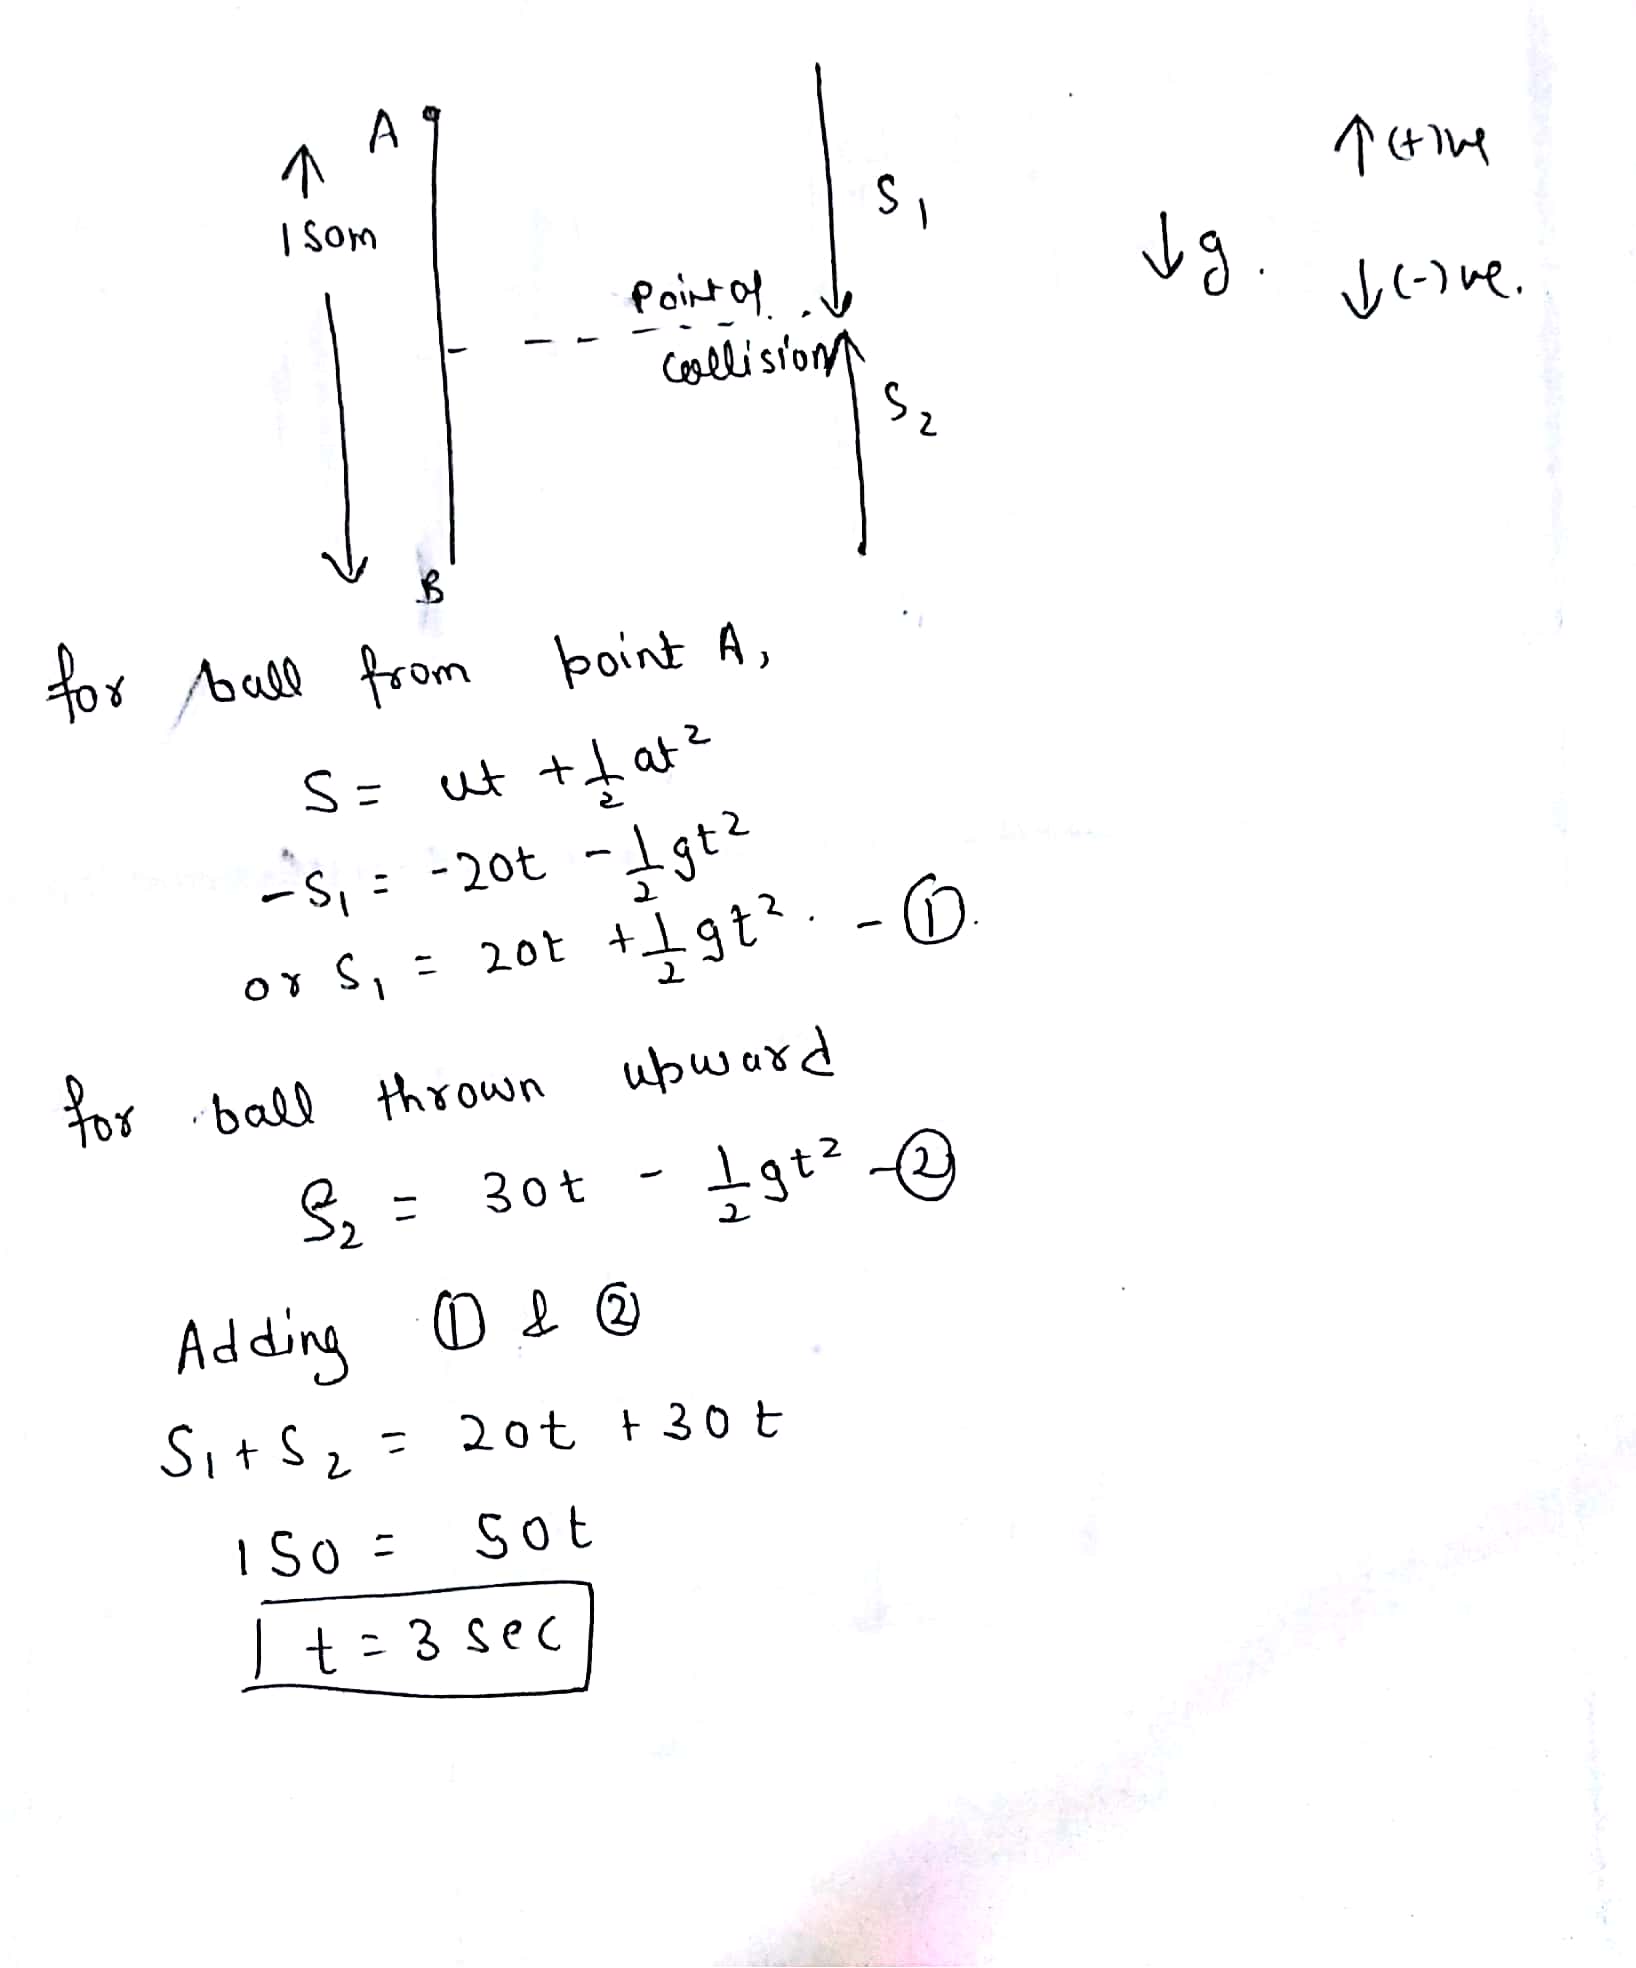 A
150m
S₁
↑ (+)ve
↓g. ↓(-)ve.
Point of
Collision
S₂
B
for ball from point A,
S = ut + 1/2 at²
-S₁ = -20t - 1/2 gt²
or S₁ = 20t + 1/2 gt². - ①.
for ball thrown upward
S₂ = 30t - 1/2 gt² - ②
Adding ① & ②
S₁+S₂ = 20t + 30t
150 = 50t
t = 3 sec